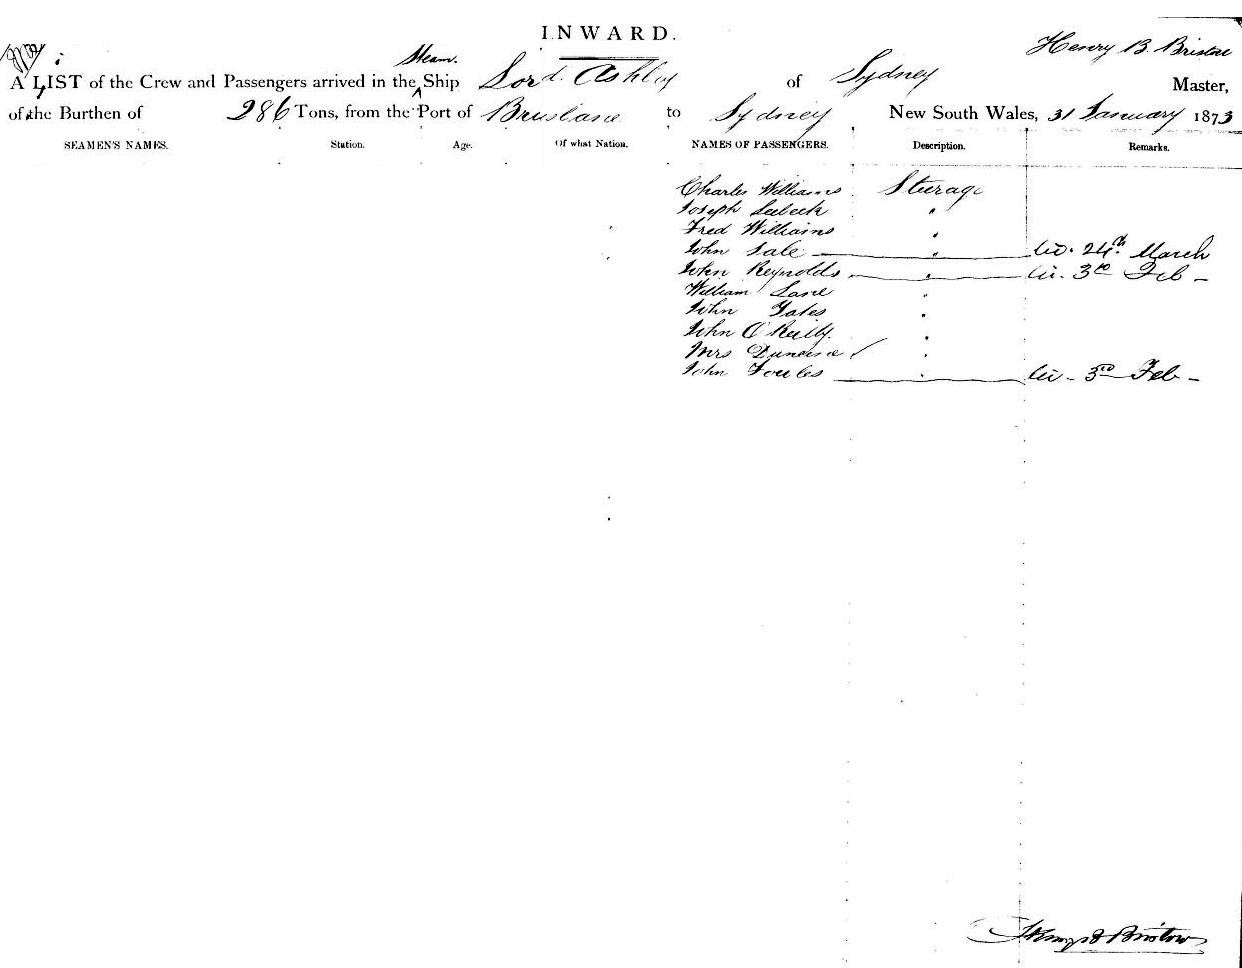 INWARD.
A LIST of the Crew and Passengers arrived in the Steam. Ship Lord Ashley of Sydney Henry B. Bristow Master,
of the Burthen of 286 Tons, from the Port of Brisbane to Sydney New South Wales, 31 January 1873
SEAMEN'S NAMES. Station. Age. Of what Nation. NAMES OF PASSENGERS. Description. Remarks.
Charles Williams Steerage
Joseph Seebeck "
Fred Williams "
John Sale " lic. 24th March
John Reynolds " lic. 3rd Feb -
William Lane "
John Yates "
John O'Reilly. "
Mrs "
John Foules " lic - 3rd Feb -
Henry B Bristow